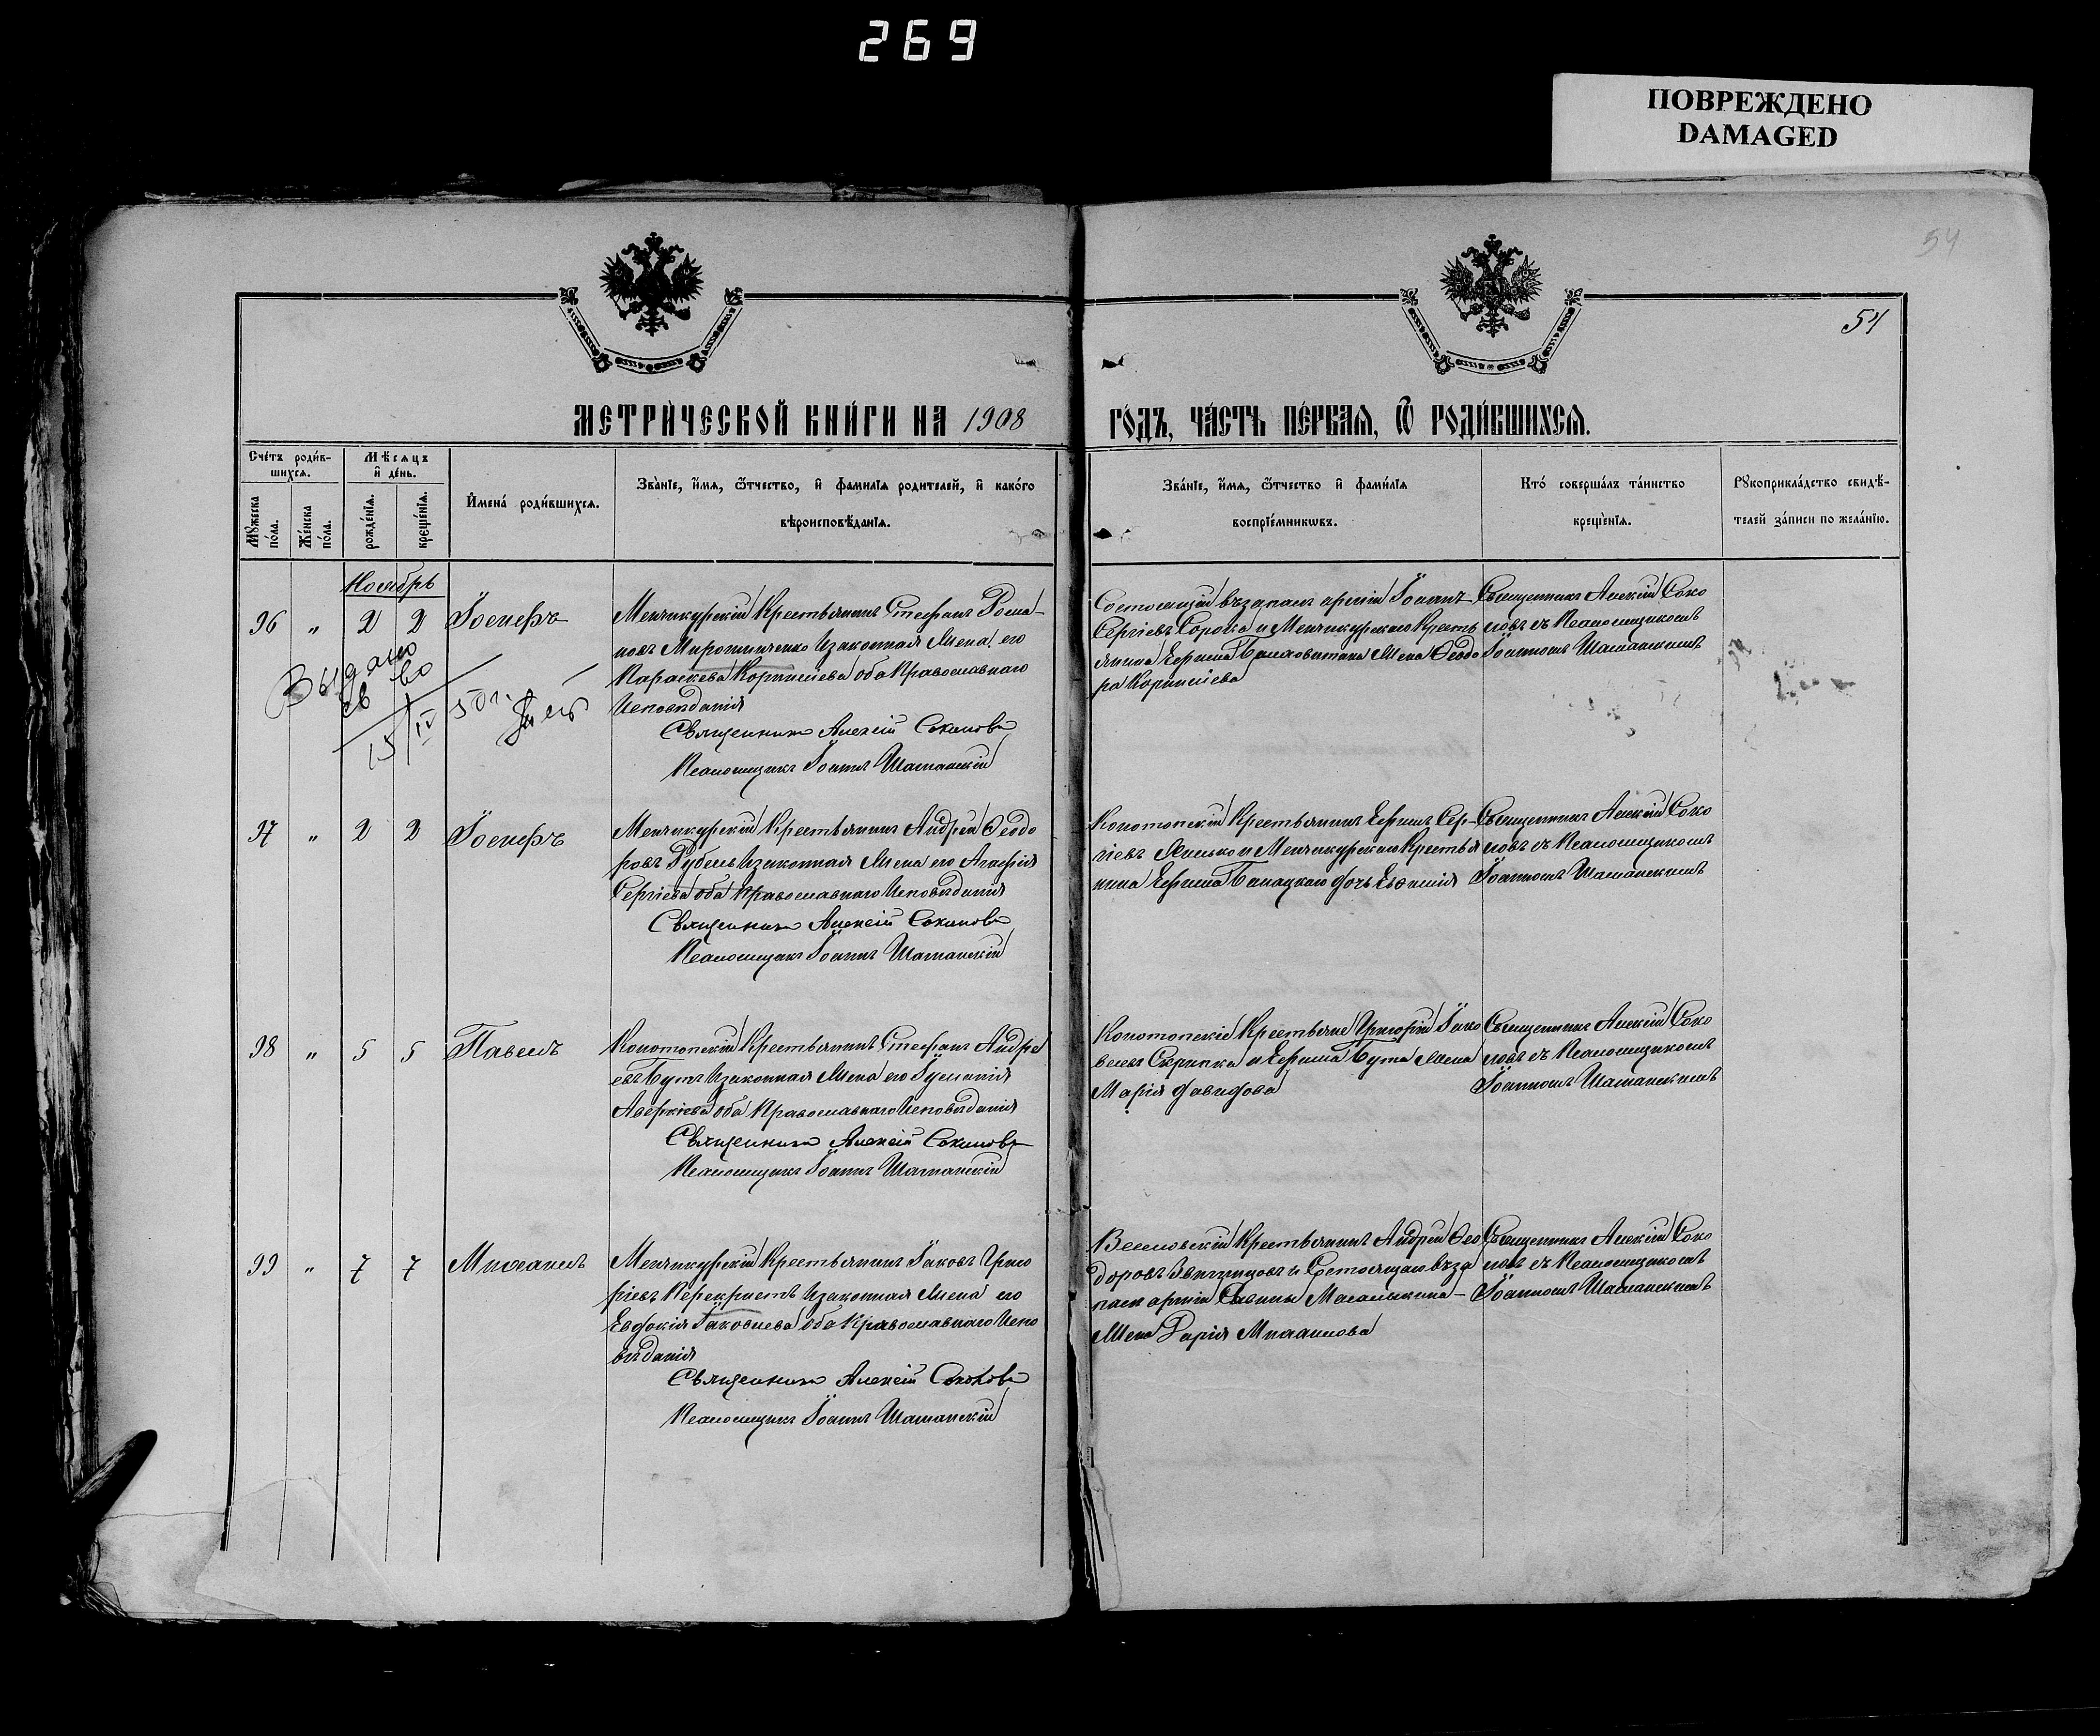 269
ПОВРЕЖДЕНО
DAMAGED
54
54
МЕТРИЧЕСКОЙ КНИГИ НА 1908
ГОДЪ, ЧАСТЬ ПЕРВАЯ, Ѡ РОДИВШИХСЯ.
Счетъ родив-
шихся.
Мѣсяцъ
и день.
Мужеска
пола.
Женска
пола.
рожденія.
крещенія.
Имена родившихся.
Званіе, имя, ѿчество, и фамилія родителей, и какого
вѣроисповѣданія.
Званіе, имя, ѿчество и фамилія
воспріемниковъ.
Кто совершалъ таинство
крещенія.
Рукоприкладство свидѣ-
телей записи по желанію.
Ноябрь
96 " 2 2 Іосифъ
Менчикурскій Крестьянинъ Стефанъ Рома-
новъ Мирошниченко и законная жена его
Параскева Корнилиева оба Православнаго
Исповѣданія
Священникъ Алексій Соколовъ
Псаломщикъ Іоаннъ Шаманскій
Состоящій въ запасѣ арміи Іоаннъ
Сергіевъ Сорока и Менчикурскаго Кресть
янина Ефима жена Ѳеодо
ра Корнилиева
Священникъ Алексій Соко
ловъ съ Псаломщикомъ
Іоанномъ Шаманскимъ
Выдано
св во
15/IV 50 г.
97 " 2 2 Іосифъ
Менчикурскій Крестьянинъ Андрей Ѳеодо
ровъ Рубель и законная жена его Агафія
Сергіева оба Православнаго Исповѣданія
Священникъ Алексій Соколовъ
Псаломщикъ Іоаннъ Шаманскій
Конотопскій Крестьянинъ Ефимъ Сер-
гіевъ и Менчикурскаго Крестья
нина Ефима Балацкаго дочь Евфимія
Священникъ Алексій Соко
ловъ съ Псаломщикомъ
Іоанномъ Шаманскимъ
98 " 5 5 Павелъ
Конотопскій Крестьянинъ Стефанъ Андре
евъ Бутъ и законная жена его Іуліанія
Аверкіева оба Православнаго Исповѣданія
Священникъ Алексій Соколовъ
Псаломщикъ Іоаннъ Шаманскій
Конотопскіе Крестьяне Григорій Іако
влевъ Скрипка и Ефима Бута жена
Марія Давидова
Священникъ Алексій Соко
ловъ съ Псаломщикомъ
Іоанномъ Шаманскимъ
99 " 7 7 Михаилъ
Менчикурскій Крестьянинъ Іаковъ Григо
ріевъ Перекрестъ и законная жена его
Евдокія Іаковлева оба Православнаго Испо
вѣданія
Священникъ Алексій Соколовъ
Псаломщикъ Іоаннъ Шаманскій
Веселовскій Крестьянинъ Андрей Ѳео
доровъ Звягинцовъ и Состоящаго въ за
пасѣ арміи Саввы
жена Дарія Михаилова
Священникъ Алексій Соко
ловъ съ Псаломщикомъ
Іоанномъ Шаманскимъ